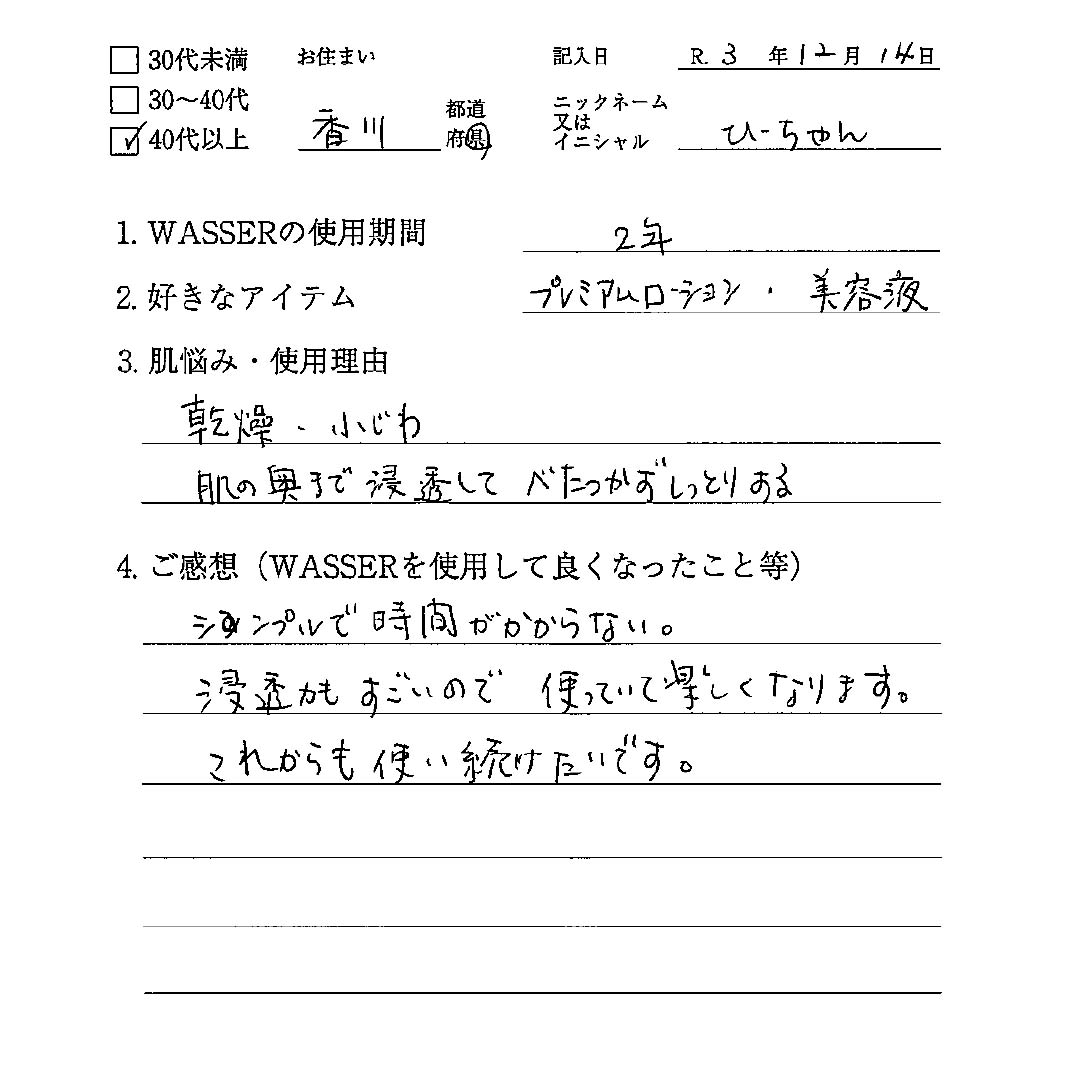 30代未満 お住まい 記入日 R. 3 年 12 月 14 日
30〜40代 香川 都道府県 ニックネーム又はイニシャル ひーちゃん
✓ 40代以上
1. WASSERの使用期間 2年
2. 好きなアイテム プレミアムローション・美容液
3. 肌悩み・使用理由
乾燥・小じわ
肌の奥まで浸透して べたつかずしっとりある
4. ご感想（WASSERを使用して良くなったこと等）
シンプルで時間がかからない。
浸透力もすごいので 使っていて楽しくなります。
これからも使い続けたいです。